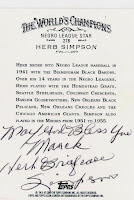 THE WORLD'S CHAMPIONS
NEGRO LEAGUE STAR
276
HERB SIMPSON
Herb broke into Negro League baseball in
1941 with the Birmingham Black Barons.
Over his 14 years in the Negro Leagues,
Herb played with the Homestead Grays,
Seattle Steelheads, Cincinnati Crescents,
Harlem Globetrotters, New Orleans Black
Pelicans, New Orleans Choices and
the Chicago American Giants. Simpson also
played in the Minors from 1951 to 1955.
May God Bless You
Herb Briefcase
Simpson
TOPPS